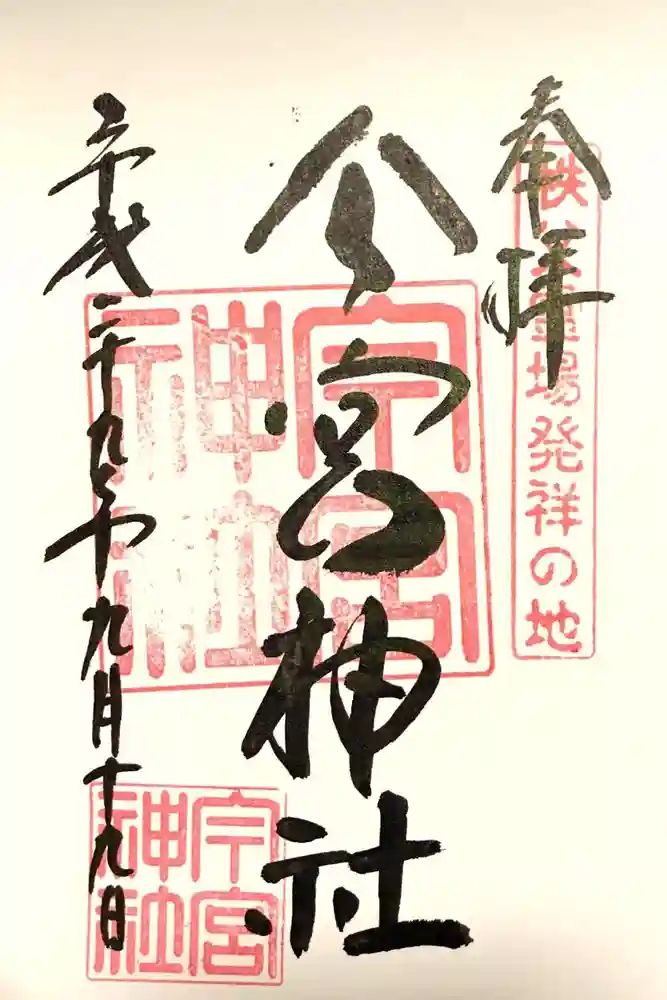 奉拝
秩父霊場発祥の地
今宮神社
今宮
神社
平成二十九年九月十九日
今宮
神社